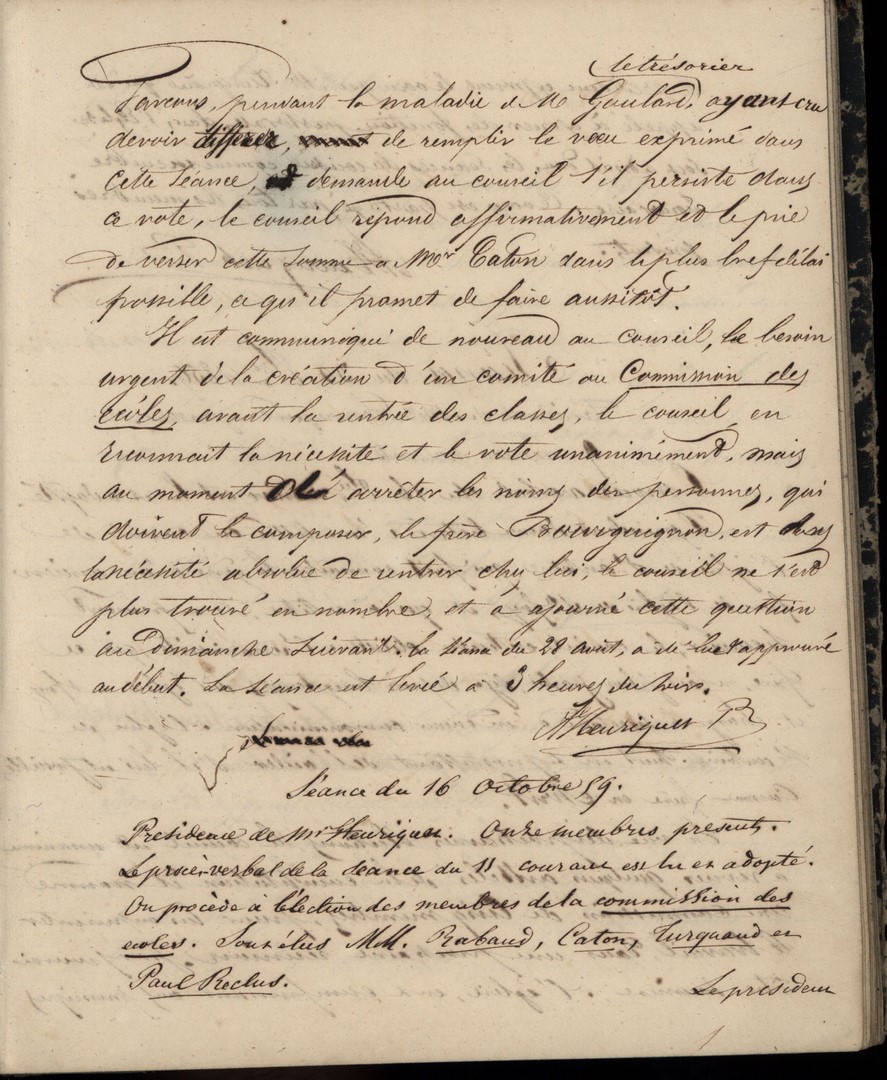 le trésorier
Parcours, pendant la maladie de Mr Goulard, ayant cru
devoir différer, de remplir le vœu exprimé dans
cette séance, demande au conseil s'il persiste dans
ce vote, le conseil répond affirmativement et le prie
de verser cette somme a Mr Caton dans le plus bref délai
possible, ce qu'il promet de faire aussitôt.
Il est communiqué de nouveau au conseil, le besoin
urgent de la création d'un comité ou Commission des
écoles, avant la rentrée des classes, le conseil en
reconnait la nécessité et le vote unanimément, mais
au moment d'en arrêter les noms des personnes, qui
doivent le composer, le frère Bourguignon, est dans
la nécessité absolue de rentrer chez lui, le conseil ne s'est
plus trouvé en nombre, et a ajourné cette question
au Dimanche suivant. La séance du 28 août, a été lue & approuvé
au début. La séance est levée à 3 heures du soir.
Henriquet
Séance du 16 Octobre 59.
Présidence de Mr Henriquet. Onze membres présents.
Le procès-verbal de la séance du 11 courant est lu et adopté.
On procède à l'élection des membres de la commission des
ecoles. Sont élus MM. Rabaud, Caton, Turquand et
Paul Reclus.
Le président